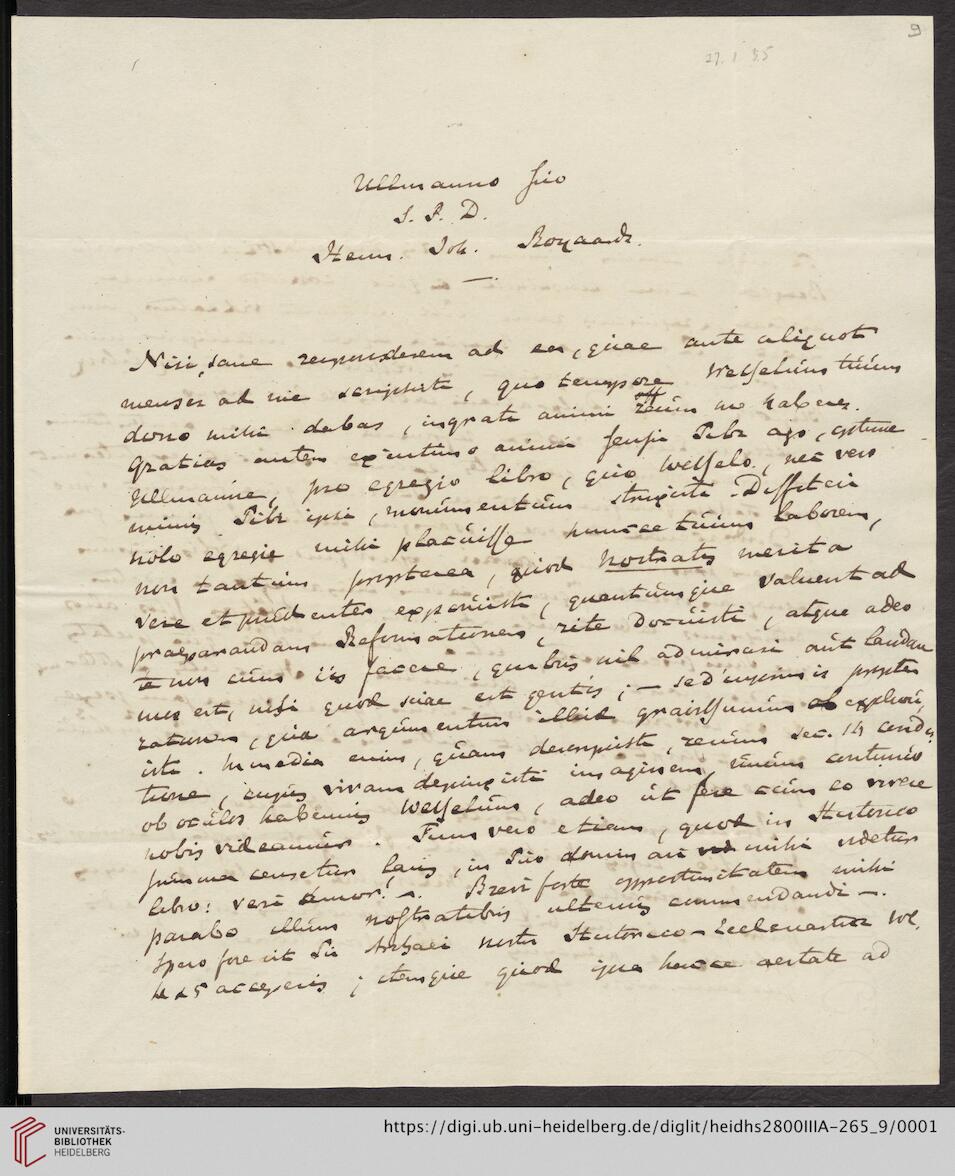 9
27. 1 35
Ullmanno suo
S. P. D.
Henr. Joh. Royaards.
Nisi sane responderem ad ea, quae ante aliquot
menses ad me scripsisti, quo tempore Wesselium tuum
dono mihi dabas, ingrati animi reum me haberes.
Gratias autem ex intimo animi sensu Tibi ago, optime
Ullmanne, pro egregio libro, quo Wesselo, nec vero
minus Tibi ipsi, monumentum struxisti. Diffiteri
nolo egregie mihi placuisse huncce tuum laborem,
non tantum propterea, quod nostratis merita
vere et prudenter exposuisti, quantumque valuerit ad
praeparandam Reformationem, rite docuisti, atque adeo
te non cum iis facere, quibus nil admirari aut laudan
dum est, nisi quod suae est gentis; – sed imprimis propter
rationem, qua argumentum illud gravissimum explicui,
isti. In media enim, quam descripsisti, rerum sec. 14 condi,
tione, cujus vivam depinxisti imaginem, unum continuo
ob oculos habemus Wesselium, adeo ut fere cum eo vivere
nobis videamur. Tum vero etiam, quod in Historico
summa censetur laus, in Tuo domin mihi videtur
libro: veri amor! –. Brevi forte opportunitatem mihi
parabo illum nostratibus ulterius commendandi –.
Spero fore ut Tu Archaei nostri Historico-Ecclesiastici Vol.
4 & 5 acceperis; itemque quod ipse hacce aestate ad
UNIVERSITÄTS-
BIBLIOTHEK
HEIDELBERG
https://digi.ub.uni-heidelberg.de/diglit/heidhs2800IIIA-265_9/0001